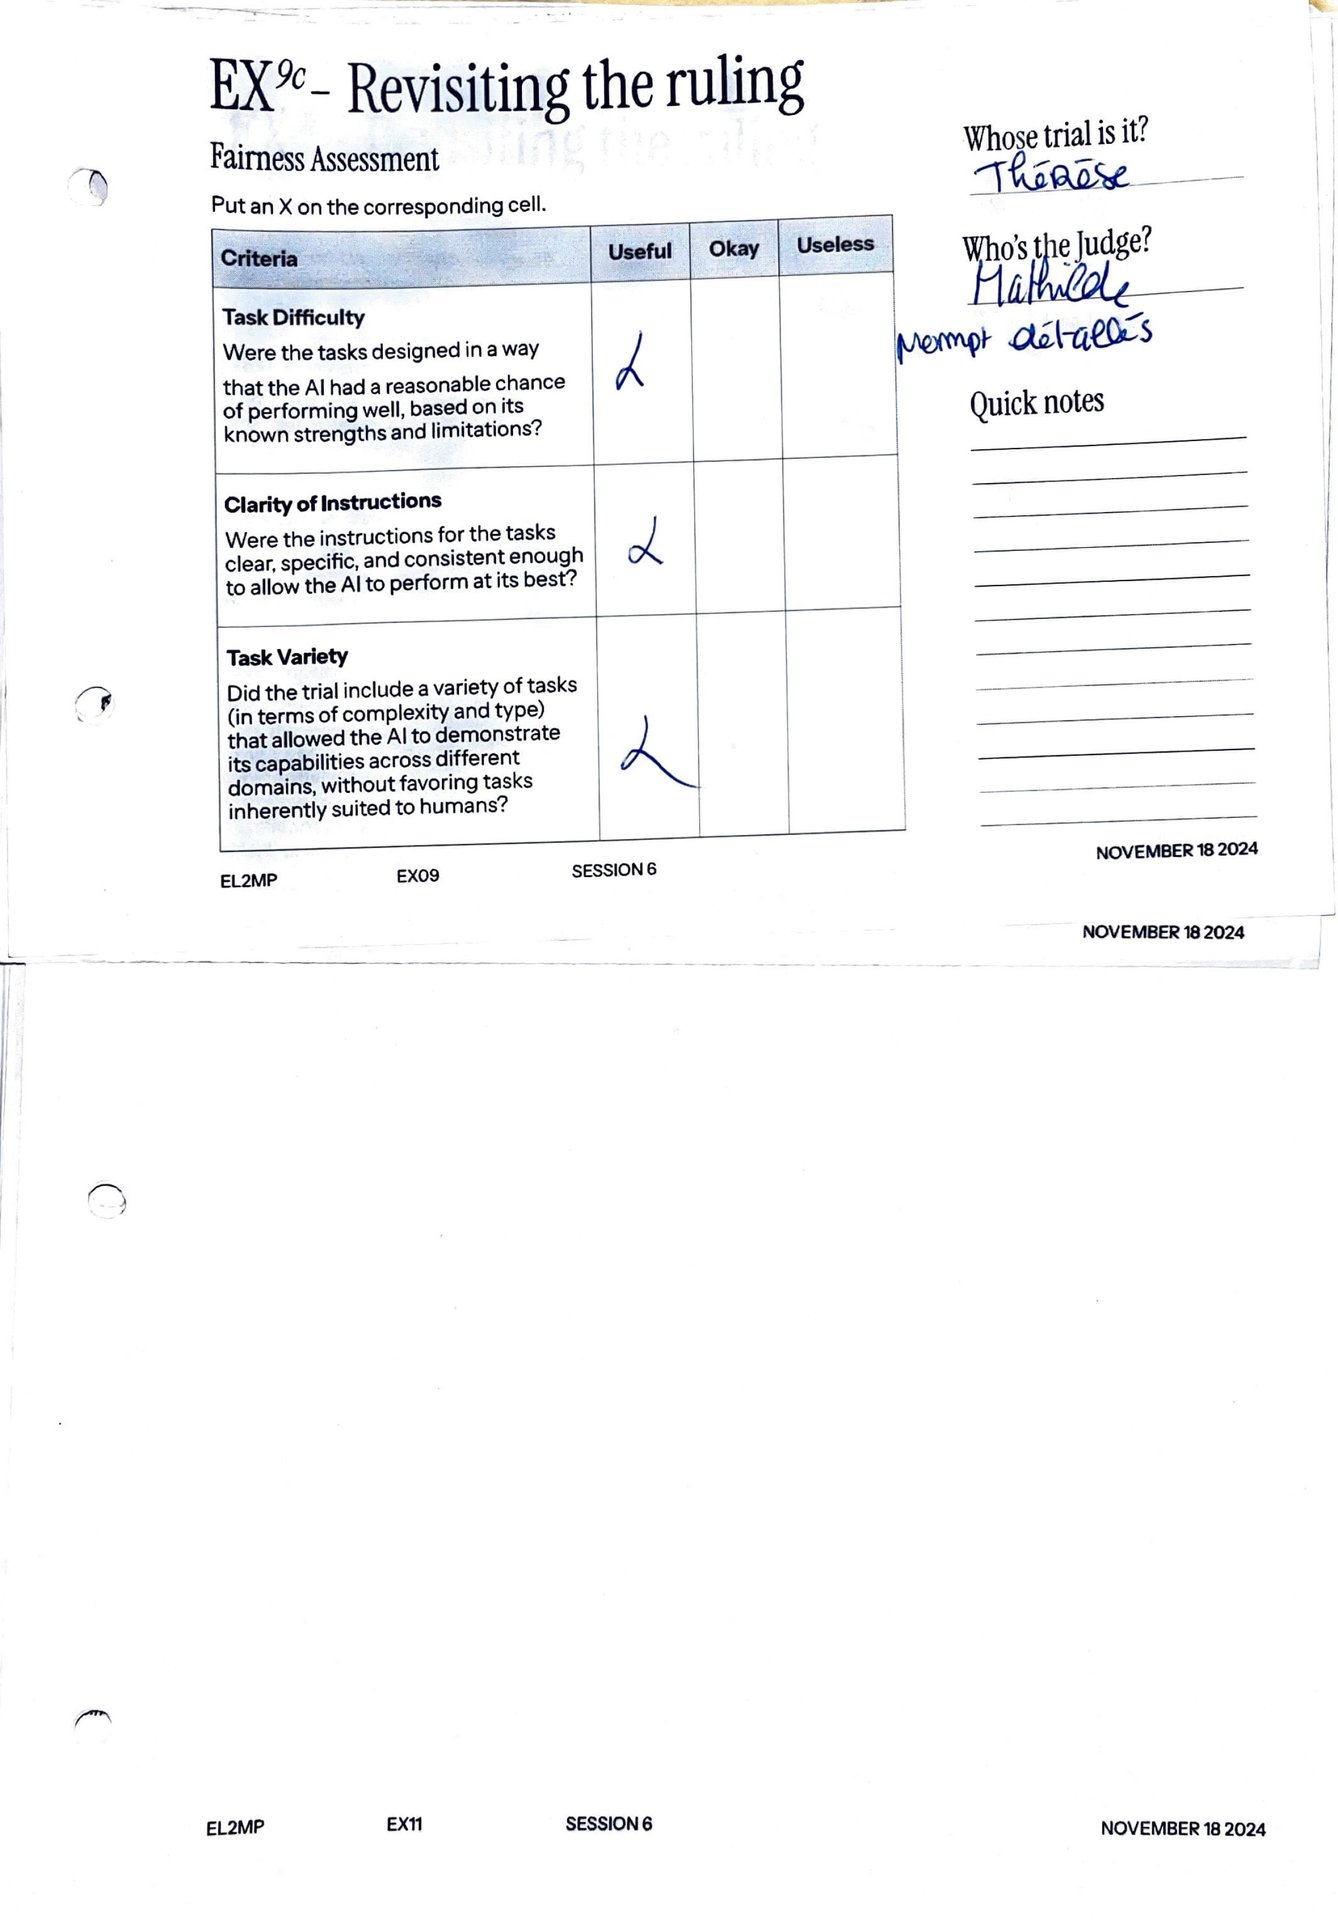 EX9c – Revisiting the ruling
Fairness Assessment
Put an X on the corresponding cell.
Criteria Useful Okay Useless
Task Difficulty
Were the tasks designed in a way
that the AI had a reasonable chance
of performing well, based on its
known strengths and limitations?
Clarity of Instructions
Were the instructions for the tasks
clear, specific, and consistent enough
to allow the AI to perform at its best?
Task Variety
Did the trial include a variety of tasks
(in terms of complexity and type)
that allowed the AI to demonstrate
its capabilities across different
domains, without favoring tasks
inherently suited to humans?
Whose trial is it?
Thérèse
Who's the Judge?
Mathilde
détaillés
Quick notes
EL2MP EX09 SESSION 6 NOVEMBER 18 2024
NOVEMBER 18 2024
EL2MP EX11 SESSION 6 NOVEMBER 18 2024